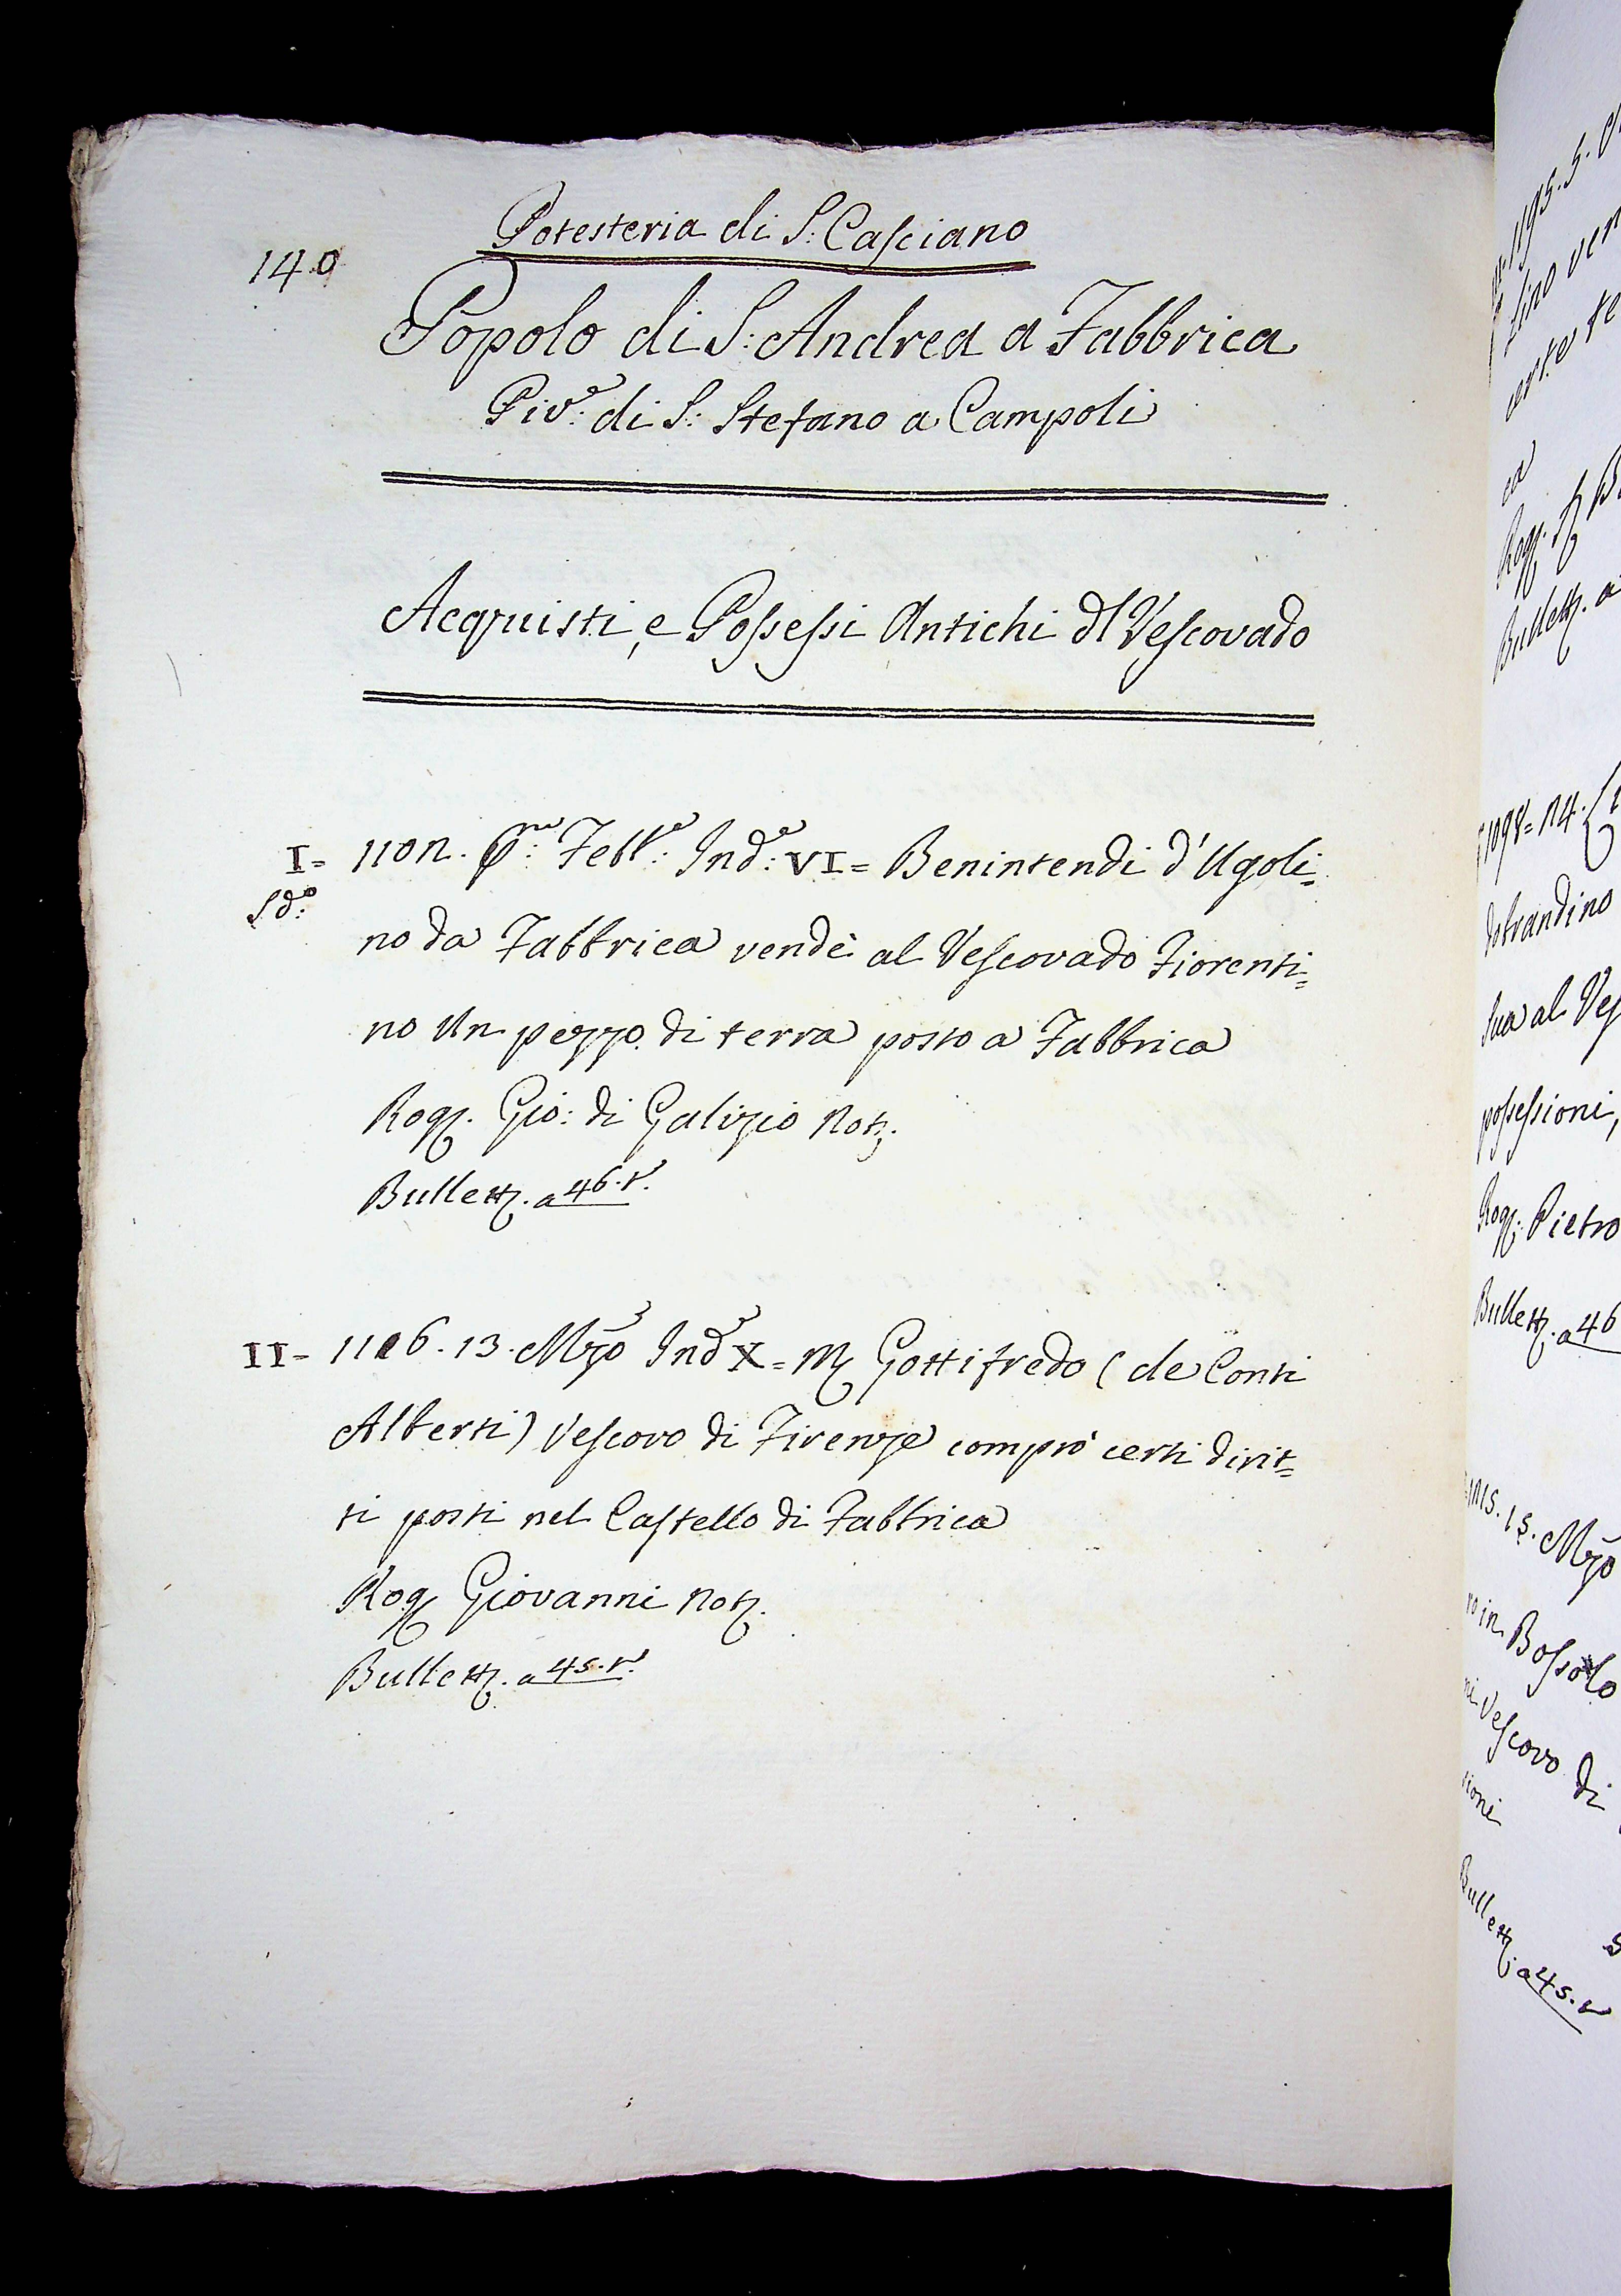 Potesteria di S: Casciano
140
Popolo di S: Andrea a Fabbrica
Piv.e di S: Stefano a Campoli
Acquisti, e Possessi Antichi dl Vescovado
I= 1102. P.mo Febb.o: Ind.e: VI= Benintendi d'Ugoli=
S.do:
no da Fabbrica vendè al Vescovado Fiorenti=
no Un pezzo di terra posto a Fabbrica
Rog. Gio: di Galizio Not.
Bullett. a 46.t.
II= 1126. 13. Mzo Ind.e X= M. Gottifredo (de Conti
Alberti) Vescovo di Firenze comprò certi dirit=
ti posti nel Castello di Fabbrica
Rog. Giovanni Not.
Bullett. a 45.t.
certe te
ca
Rog.
Bullett. a
dobrandino
sua al Ves
possessioni,
Rog: Pietro
Bullett. a 46
15. Mzo
Bossolo
Vescovo di
sioni
Bullett. a 45.t